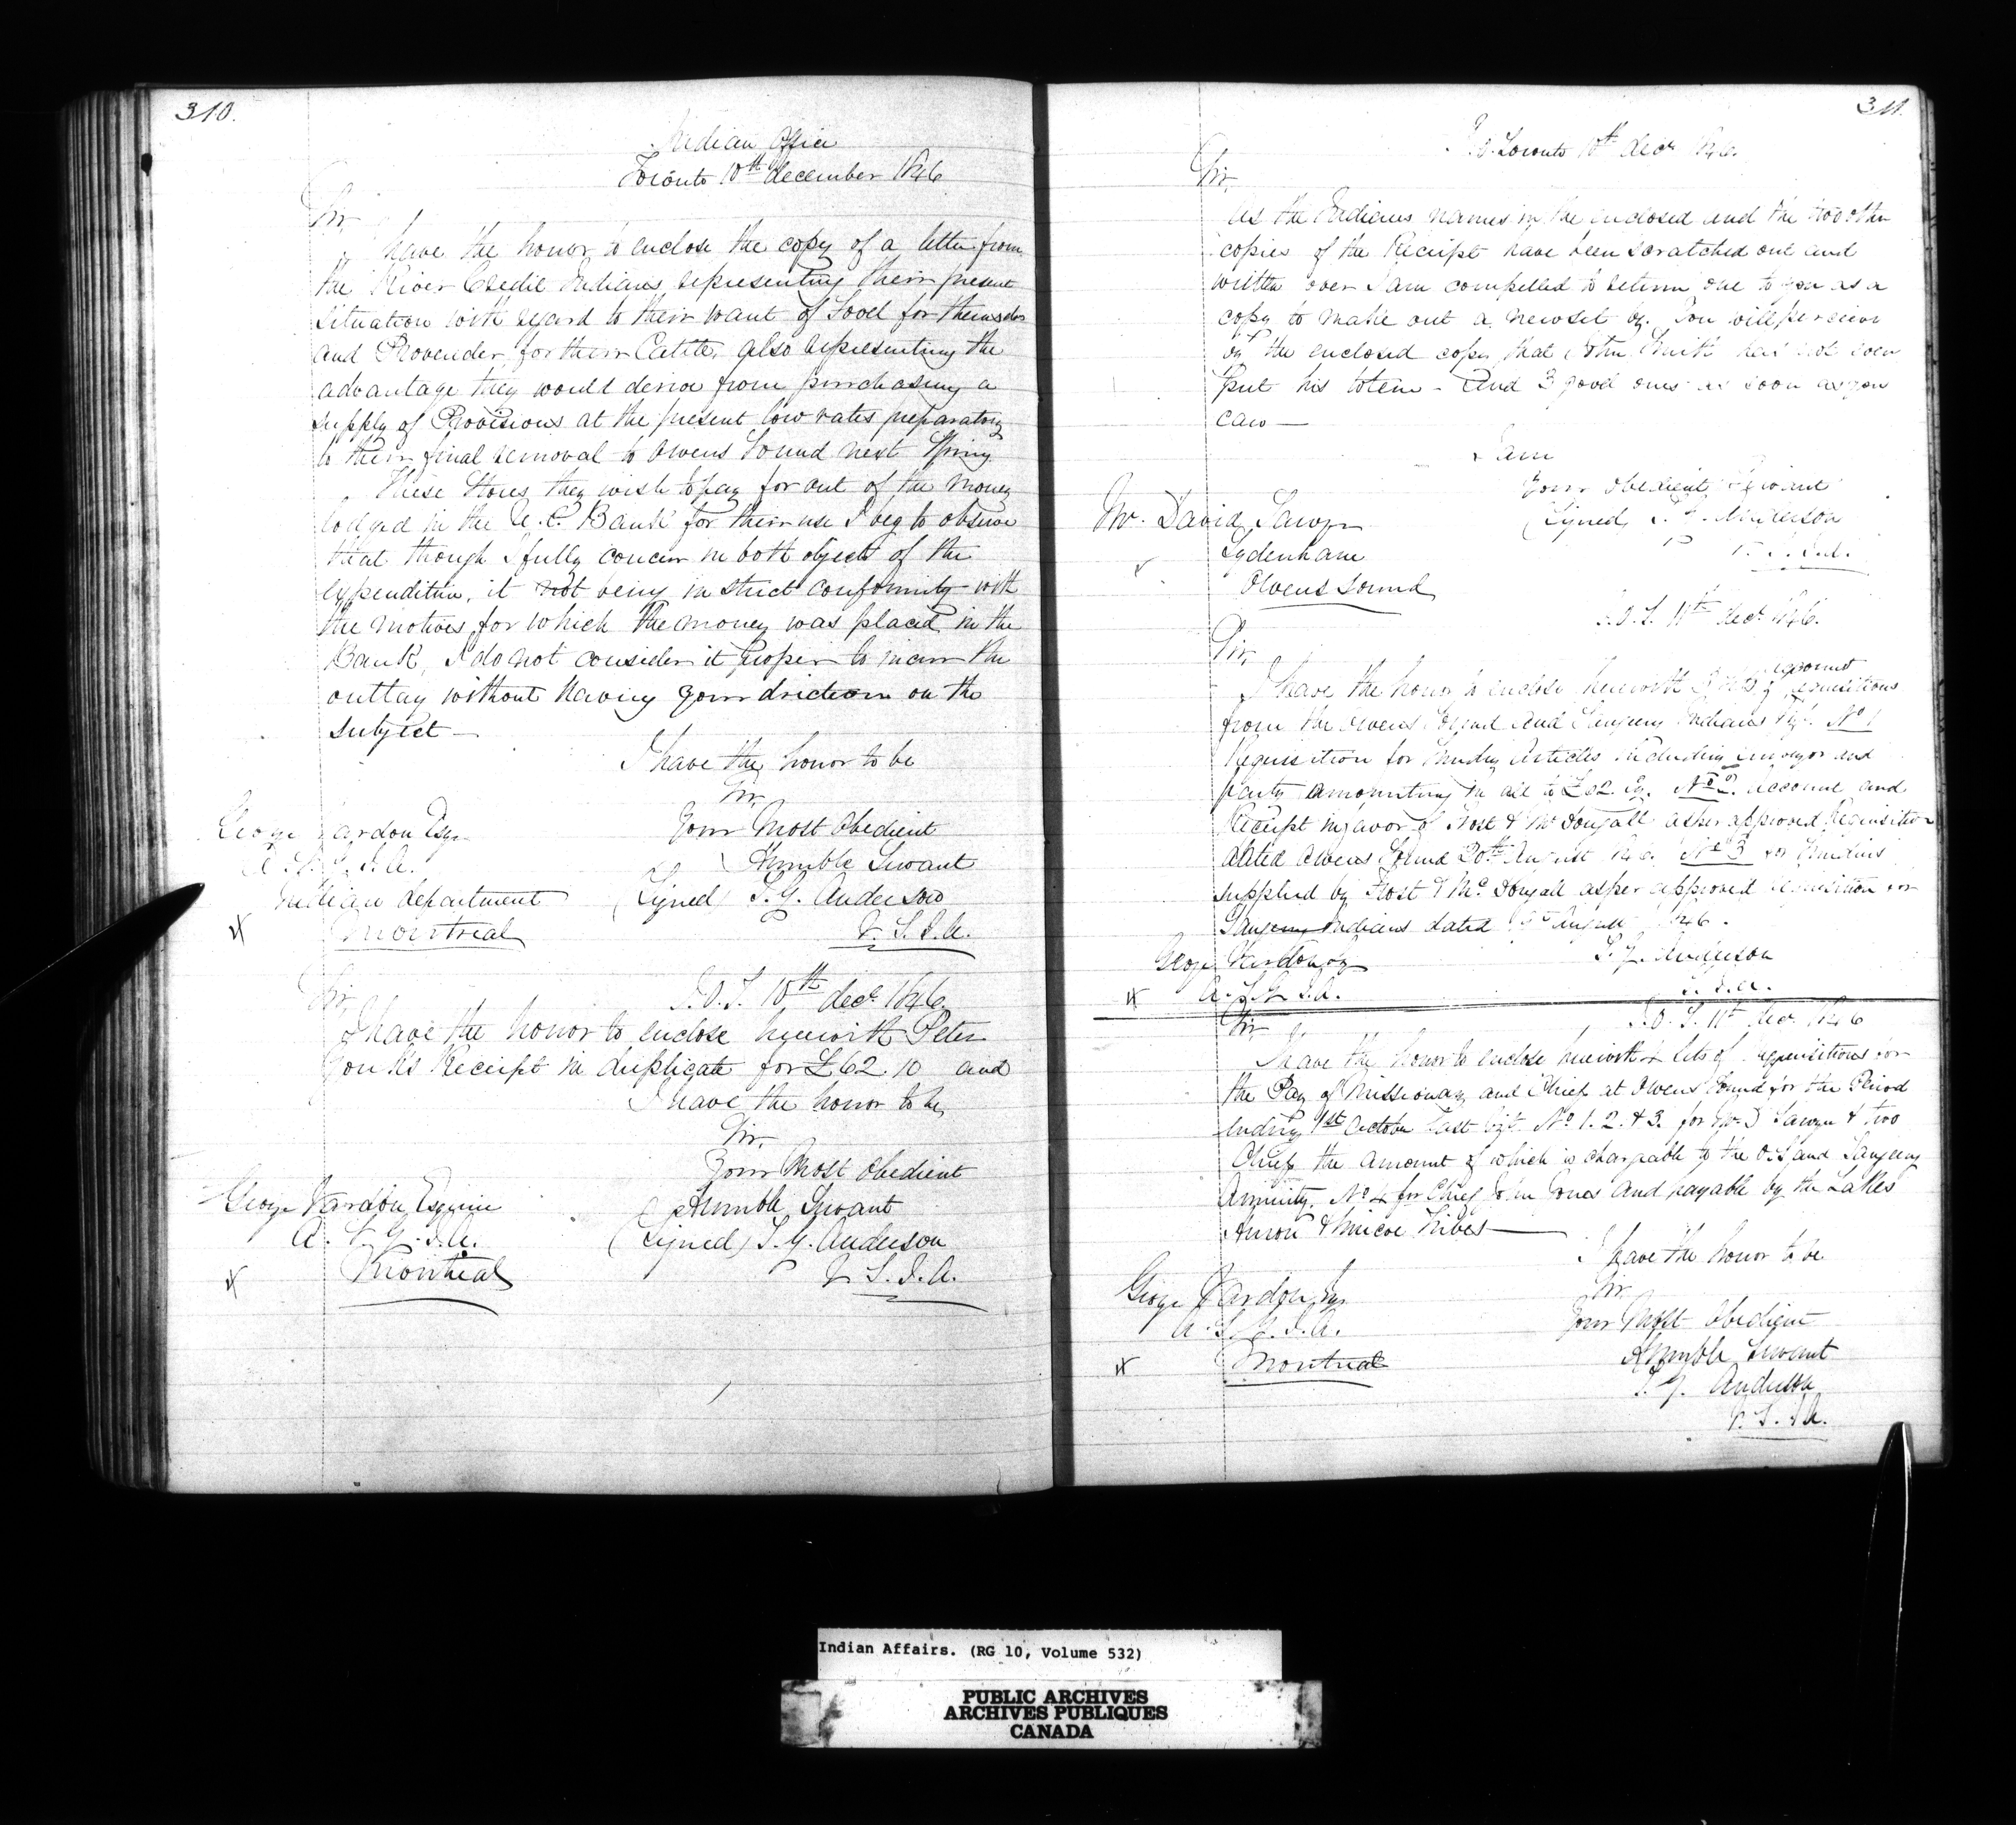 310.
Indian Office
Toronto 10th december 1846
Sir,
I have the honor to enclose the copy of a letter from
the River Credit Indians representing their present
situation with regard to their want of Food for themselves
and Provender for their Cattle, also representing the
advantage they would derive from purchasing a
supply of Provisions at the present low rates preparatory
to their final removal to Owens Sound next Spring.
These Stores they wish to pay for out of the money
lodged in the U. C. Bank for their use I beg to observe
that though I fully concur in both objects of the
expenditure, it not being in strict conformity with
the motives for which the money was placed in the
Bank, I do not consider it proper to incur the
outlay without having your driction on the
subject —
I have the honor to be
Sir,
Your Most Obedient
Humble Servant
(Signed) T. G. Anderson
V. S. I. A.
George Vardon Esqr
A. S. G. I. A.
Indian department
Montreal
I. O. T. 10th decr. 1846
Sir,
I have the honor to enclose herewith Peter
Jonks Receipt in duplicate for £62.10 and
I have the honor to be
Sir,
Your Most Obedient
Humble Servant
(Signed) T. G. Anderson
V. S. I. A.
George Vardon Esquire
A. S. G. I. A.
Montreal
311.
I. O. Toronto 10th decr 1846.
Sir,
As the Indians names in the enclosed and the two other
copies of the Receipt have been scratched out and
written over I am compelled to return one to you as a
copy to make out a new set by. You will perceive
on the enclosed copy that John Smith has not even
put his totem - And 3 good ones as soon as you
can —
I am
Your Obedient Servant
(Signed) T. G. Anderson
V. S. I. A.
Mr. David Sawyer
Sydenham
Owens Sound
I. O. T. 11th decr 1846.
Sir,
I have the honor to enclose herewith 3 sets of account requisitions
from the Owens Sound and Saugeeng Indians Vizt. No 1
Requisition for Sundry Articles including
party amounting in all to No 2. Account and
Receipt in favor of Frost & McDougall as per approved Requisition
dated Owens Sound 20th August 1846. No 3 for Sundries
supplied by Frost & McDougall as per approved requisition for
Saugeeng Indians dated August 1846.
T. G. Anderson
S. I. A.
George Vardon Esq
A. S. G. I. A.
I. O. T. 11th decr 1846
Sir,
I have the honor to enclose herewith 4 sets of requisitions for
the Pay of Missionary and Chief at Owens Sound for the Period
ending 1st October last Vizt. No 1. 2. & 3. for Mr. D Sawyer & two
Chiefs the amount of which is chargable to the O. S and Saugeeng
Annuity. No 4 for Chief John Jones and payable by the Lakes
Huron & Simcoe Tribes —
I have the honor to be
Sir
Your Most Obedient
Humble Servant
T. G. Anderson
V. S. I. A.
George Vardon Esq
A. S. G. I. A.
Montreal
Indian Affairs. (RG 10, Volume 532)
PUBLIC ARCHIVES
ARCHIVES PUBLIQUES
CANADA